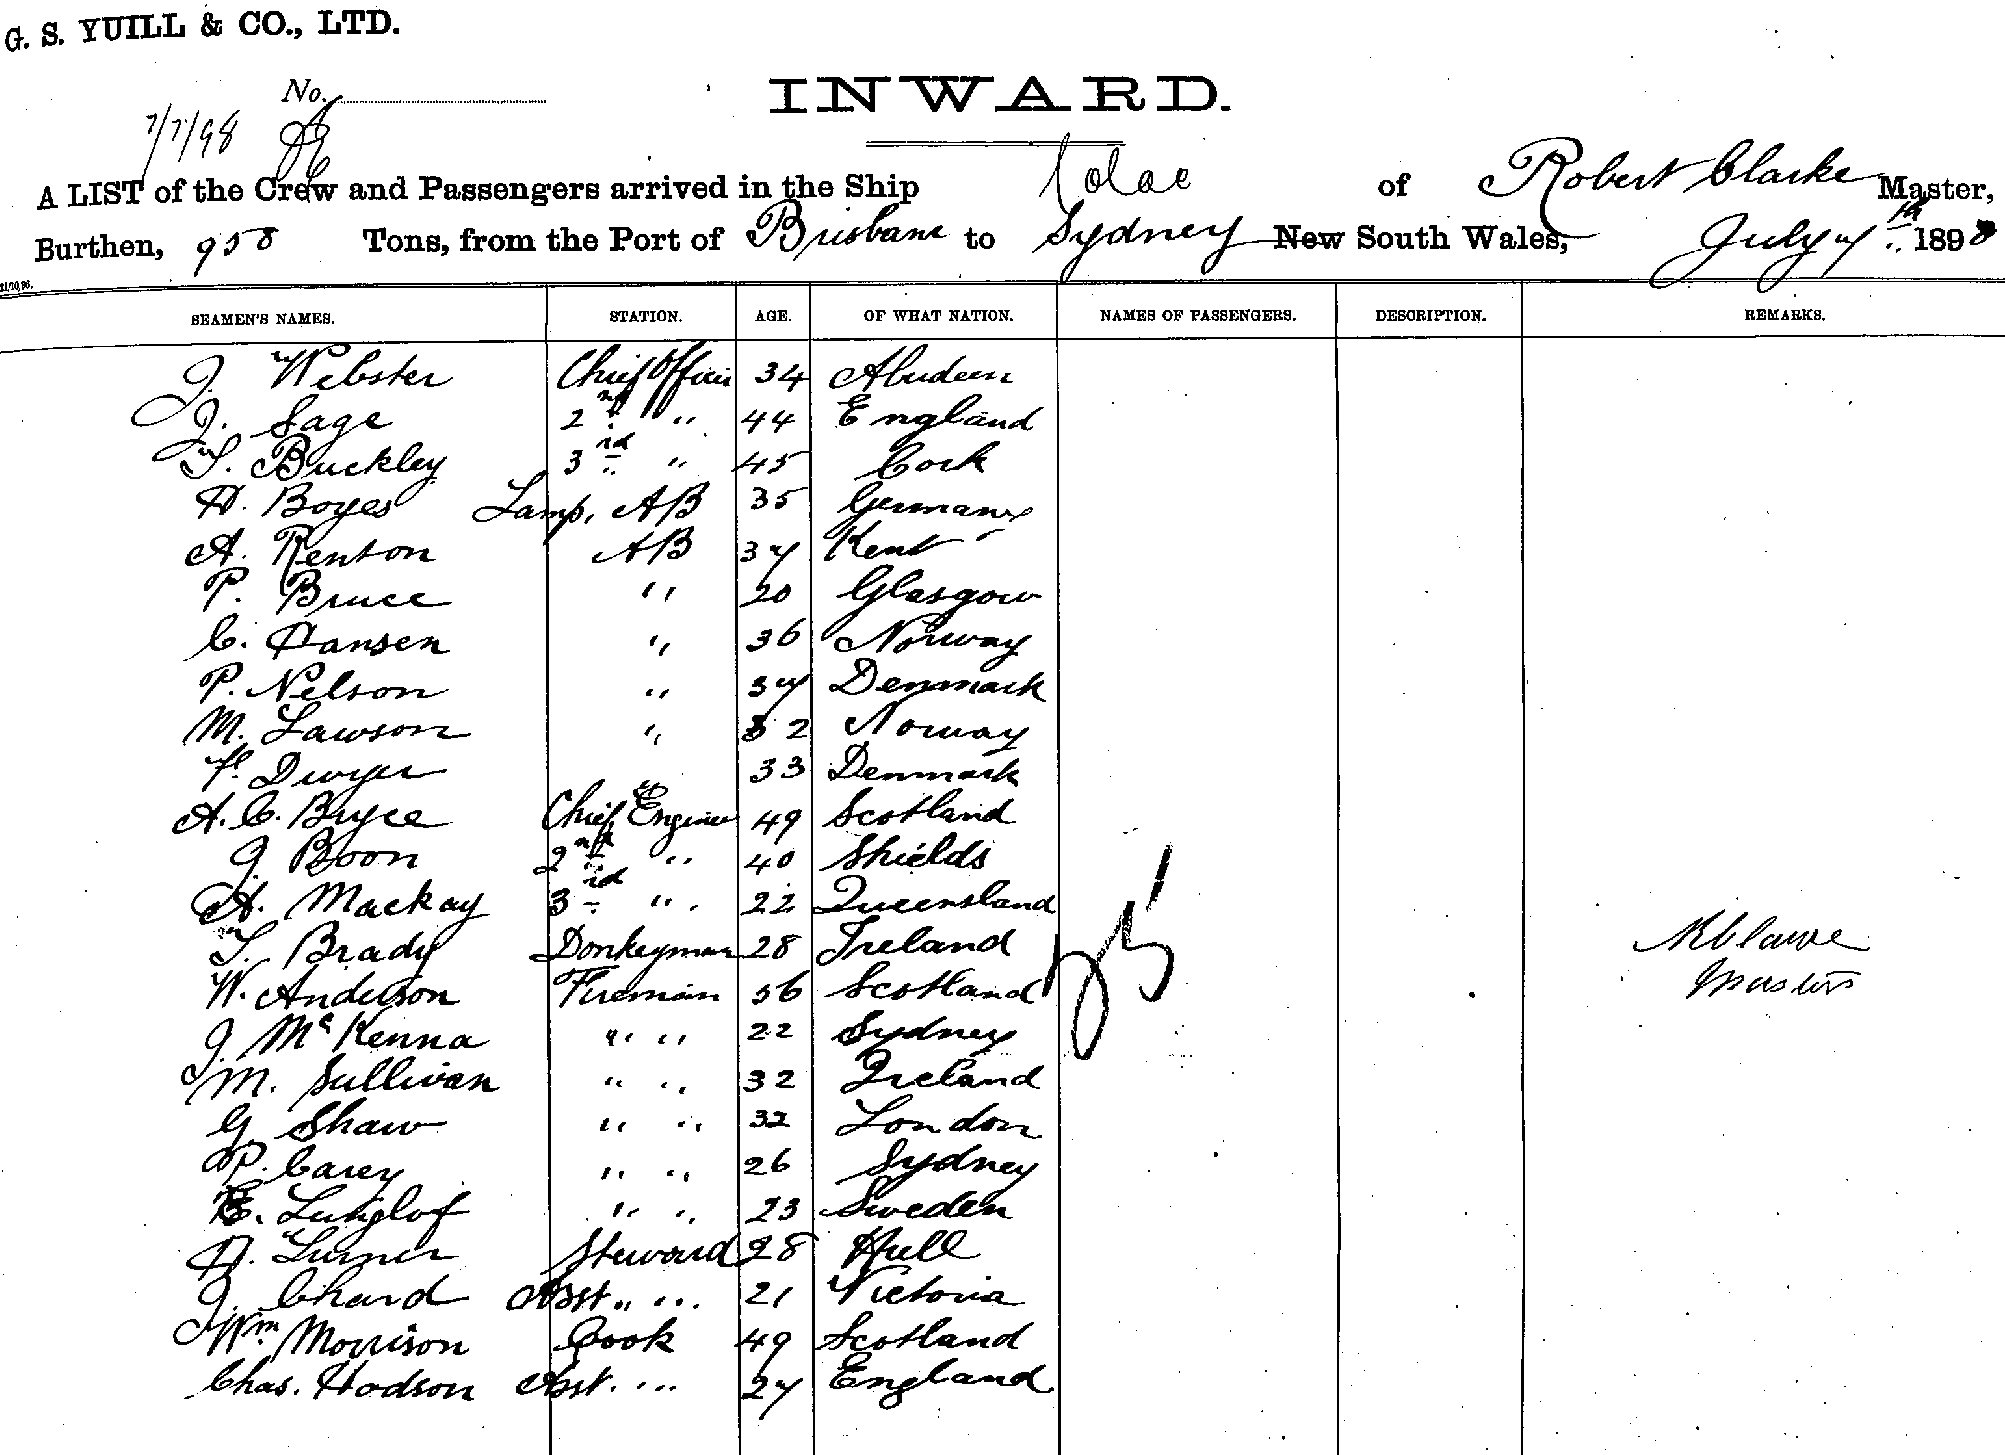 G. S. YUILL & CO., LTD.
No.
7/7/98
INWARD.
A LIST of the Crew and Passengers arrived in the Ship of Robert Clarke Master,
Burthen, 958 Tons, from the Port of Brisbane to Sydney New South Wales, July 7th 1898
SEAMEN'S NAMES. STATION. AGE. OF WHAT NATION. NAMES OF PASSENGERS. DESCRIPTION. REMARKS.
J. Webster Chief Officer 34 Aberdeen
J. Sage 2nd " 44 England
T. Buckley 3rd " 45 Cork
H. Boyes Lamp, AB 35 Germany
A. Renton AB 37 Kent
P. Bruce " 20 Glasgow
C. Hansen " 36 Norway
P. Nelson " 37 Denmark
M. Lawson " 32 Norway
Dwyer 33 Denmark
A. C. Bryce Chief Engineer 49 Scotland
J Boon 2nd " 40 Shields
A. Mackay 3rd " 22 Queensland
T. Brady Donkeyman 28 Ireland
W. Anderson Fireman 56 Scotland
J. McKenna " " 22 Sydney
M. Sullivan " " 32 Ireland
G Shaw " " 32 London
P. Carey " " 26 Sydney
E. Lunglof " " 23 Sweden
H. Turner Steward 28 Hull
J. Chard Asst " " 21 Victoria
Wm Morrison Cook 49 Scotland
Chas. Hodson Asst. " 27 England
25
R Clarke
Master